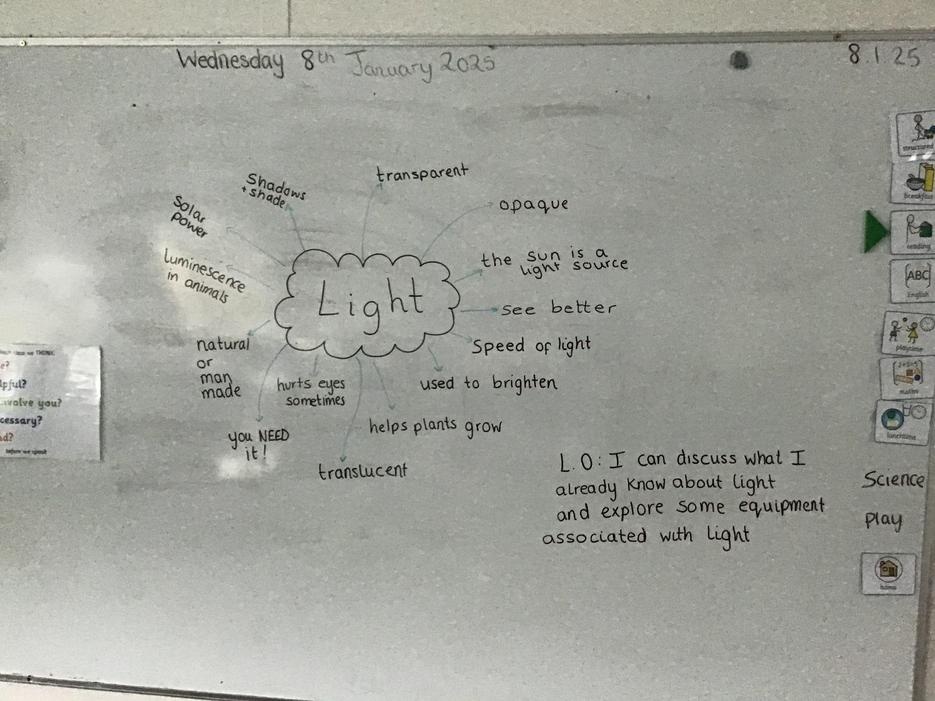 Wednesday 8th January 2025
8.1.25
Shadows
+ shade
transparent
opaque
Solar
power
the sun is a
light source
luminescence
in animals
Light
see better
Speed of light
natural
or
man
made
hurts eyes
sometimes
used to brighten
you NEED
it!
helps plants grow
translucent
L.O: I can discuss what I
already know about light
and explore some equipment
associated with light
structured
breakfast
reading
ABC
English
playtime
maths
lunchtime
Science
play
home
THINK
e?
lpful?
volve you?
cessary?
nd?
before we speak